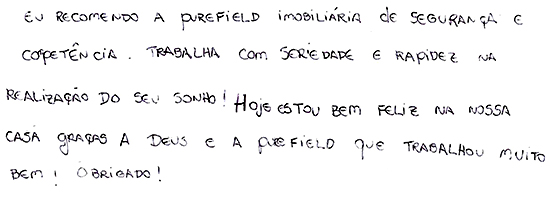 EU RECOMENDO A PUREFIELD IMOBILIÁRIA de SEGURANÇA E
COPETÊNCIA. TRABALHA COM SERIEDADE E RAPIDEZ NA
REALIZAÇÃO DO SEU SONHO! HOJE ESTOU BEM FELIZ NA NOSSA
CASA GRAÇAS A DEUS E A PUREFIELD QUE TRABALHOU MUITO
BEM! OBRIGADO!